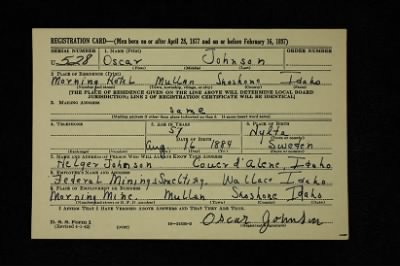 REGISTRATION CARD—(Men born on or after April 28, 1877 and on or before February 16, 1897)
SERIAL NUMBER 1. NAME (Print) ORDER NUMBER
U 528 Oscar Johnson
(First) (Middle) (Last)
2. PLACE OF RESIDENCE (Print)
Morning Hotel Mullan Shoshone Idaho
(Number and street) (Town, township, village, or city) (County) (State)
[THE PLACE OF RESIDENCE GIVEN ON THE LINE ABOVE WILL DETERMINE LOCAL BOARD
JURISDICTION; LINE 2 OF REGISTRATION CERTIFICATE WILL BE IDENTICAL]
3. MAILING ADDRESS
same
[Mailing address if other than place indicated on line 2. If same insert word same]
4. TELEPHONE 5. AGE IN YEARS 6. PLACE OF BIRTH
57 Hylta
DATE OF BIRTH
Aug 16 1884 Sweden
7. NAME AND ADDRESS OF PERSON WHO WILL ALWAYS KNOW YOUR ADDRESS
Helger Johnson Couer d'Alene, Idaho
8. EMPLOYER'S NAME AND ADDRESS
Federal Mining &Smelting, Wallace Idaho
9. PLACE OF EMPLOYMENT OR BUSINESS
Morning Mine. Mullan Shoshone Idaho
(Number and street or R. F. D. number) (Town) (County) (State)
I AFFIRM THAT I HAVE VERIFIED ABOVE ANSWERS AND THAT THEY ARE TRUE.
D. S. S. Form 1
(Revised 4-1-42) (over) Oscar Johnson